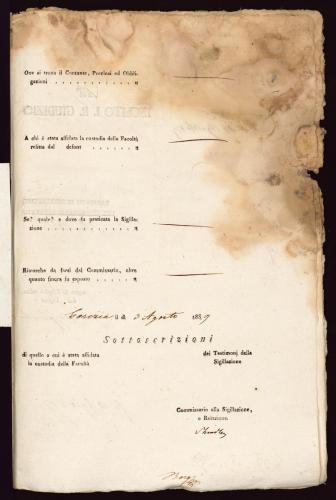 Ove si trova il Contante, Preziosi ed Obbli-
gazioni . . . . . . . . . . . . "
A chi è stata affidata la custodia della Facoltà
relitta dal defont . . . . . . . . . "
Se? quale? e dove fu praticata la Sigilla-
zione . . . . . . . . . . . . . "
Ricerche da farsi dal Commissario, oltre
quanto finora fu esposto . . . . . . "
li 3 Agosto 1839
Sottoscrizioni
di quello a cui è stata affidata
la custodia della Facoltà
dei Testimonj della
Sigillazione
Commissario alla Sigillazione,
o Relazione